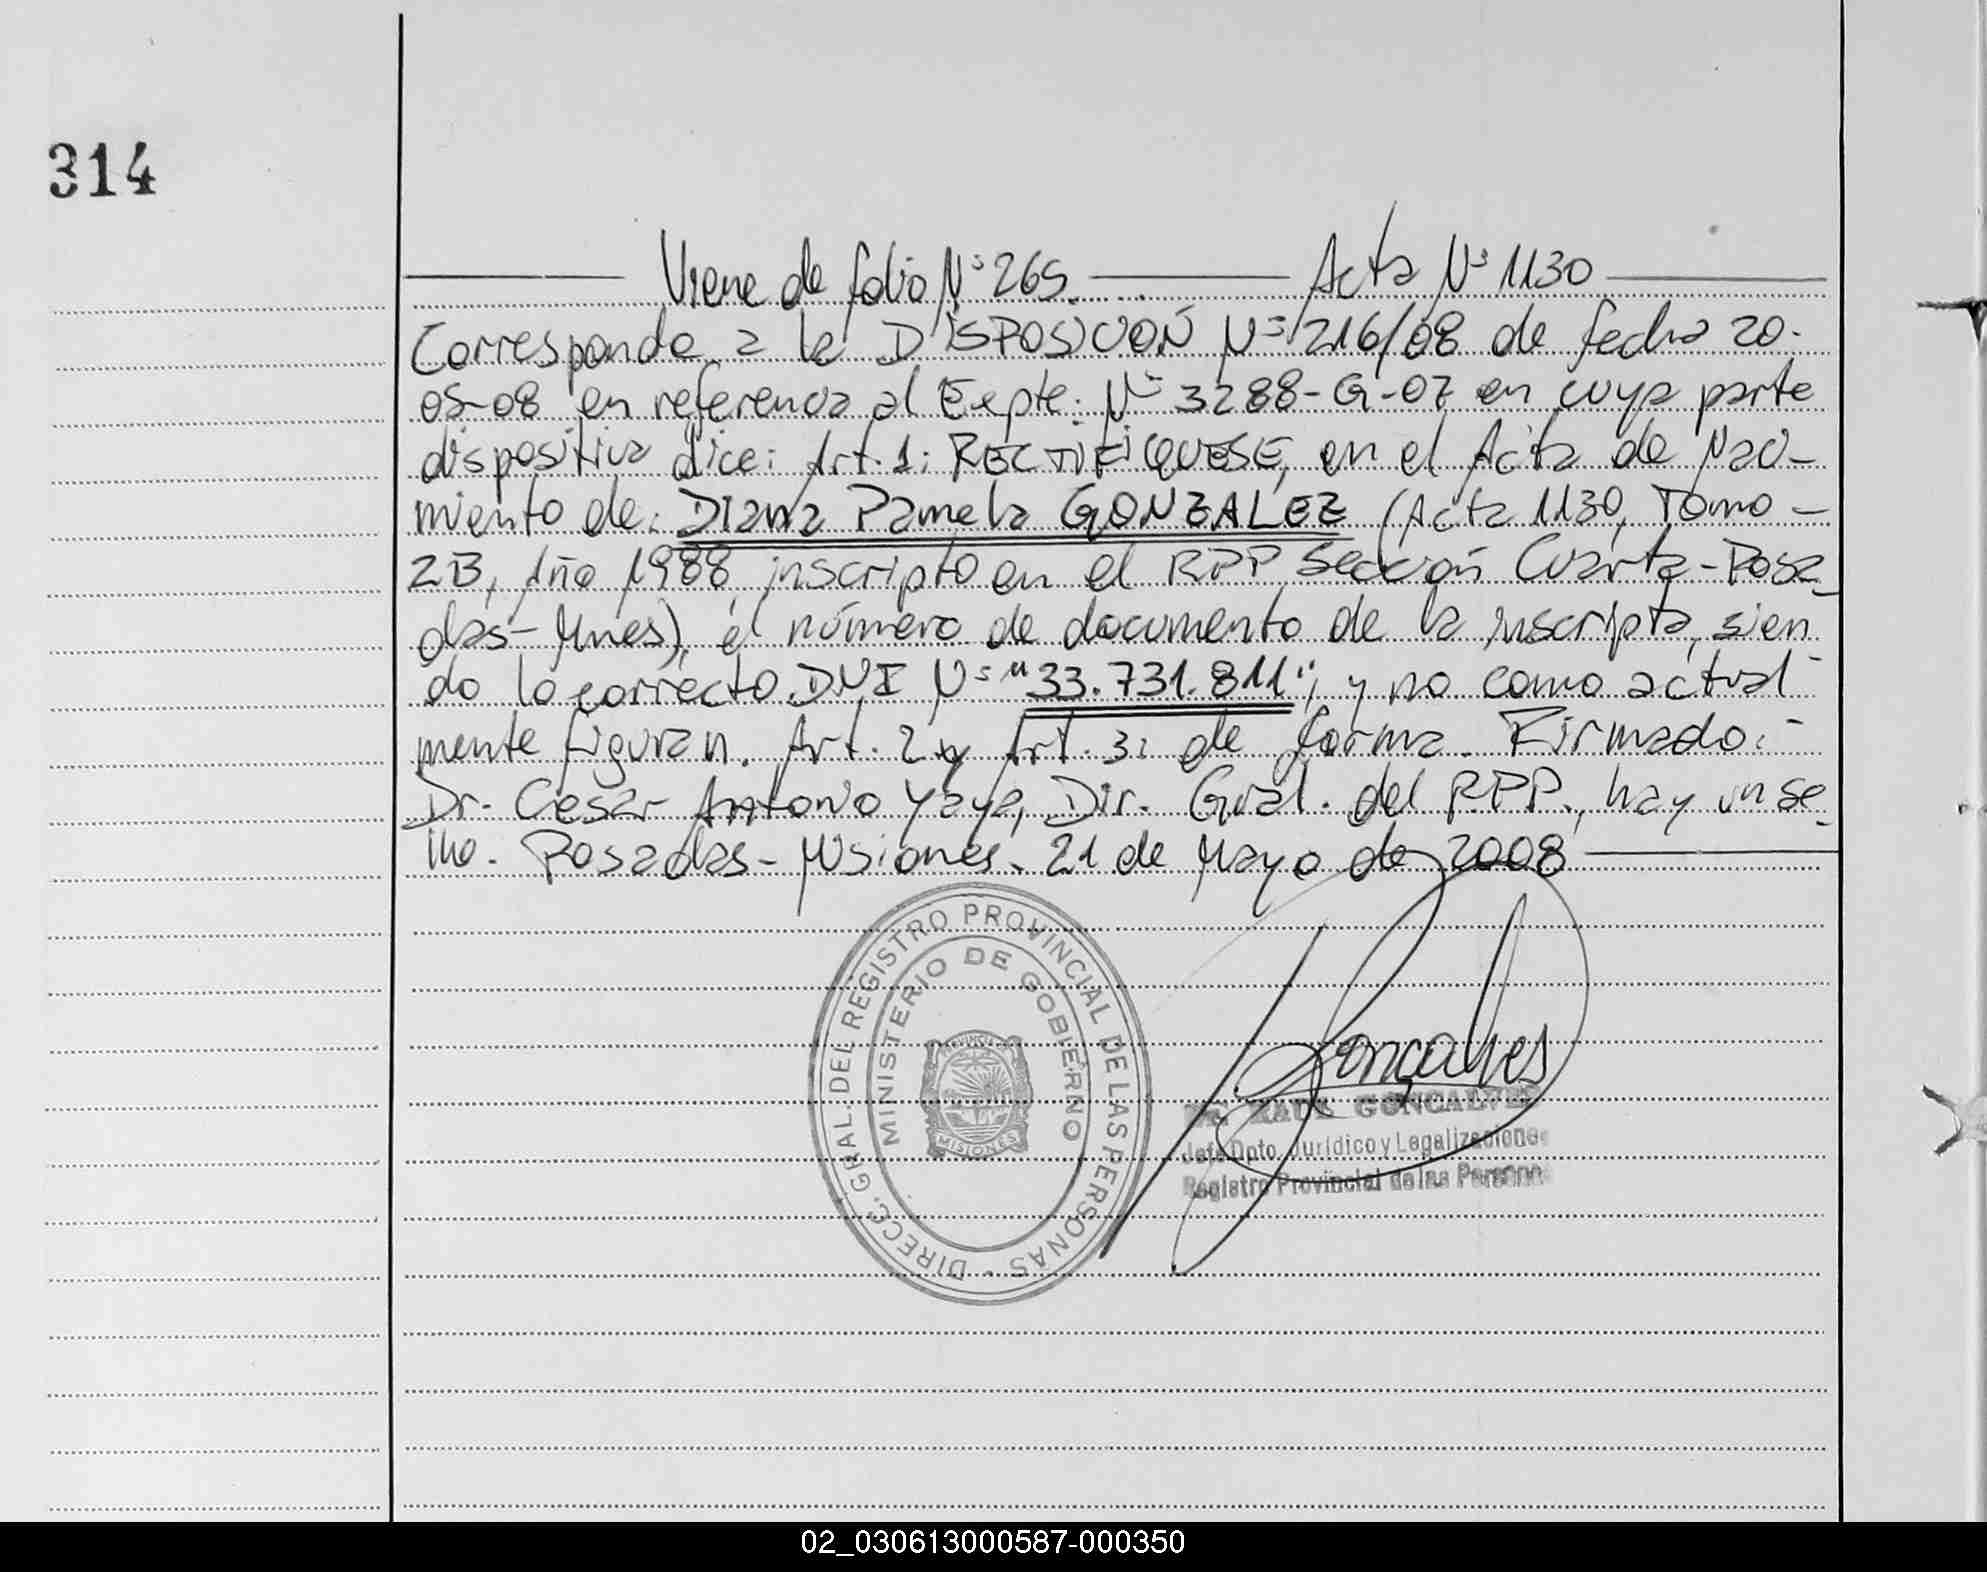 314
Viene de folio Nº 265. Acta Nº 1130
Corresponde a la DISPOSICIÓN Nº 216/08 de fecha 20-
05-08 en referencia al Expte. Nº 3288-G-07 en cuya parte
dispositiva dice: Art. 1: RECTIFIQUESE, en el Acta de Naci-
miento de: Diana Pamela GONZALEZ (Acta 1130, Tomo -
2B, Año 1988 inscripto en el RPP Sección Cuarta-Posa-
das-Mnes), el número de documento de la inscripta, sien-
do lo correcto DNI Nº "33.731.811", y no como actual-
mente figura n. Art. 2 y Art. 3: de forma. Firmado:-
Dr. Cesar Antonio Yaya, Dir. Gral. del RPP., hay un se-
llo. Posadas-Misiones. 21 de Mayo de 2008
DIRECC. GRAL. DEL REGISTRO PROVINCIAL DE LAS PERSONAS -
MINISTERIO DE GOBIERNO
PROVINCIA DE
MISIONES
Gonçalves
Dr. RAUL GONCALVES
Jefe Dpto. Jurídico y Legalizaciones
Registro Provincial de las Personas
02_030613000587-000350